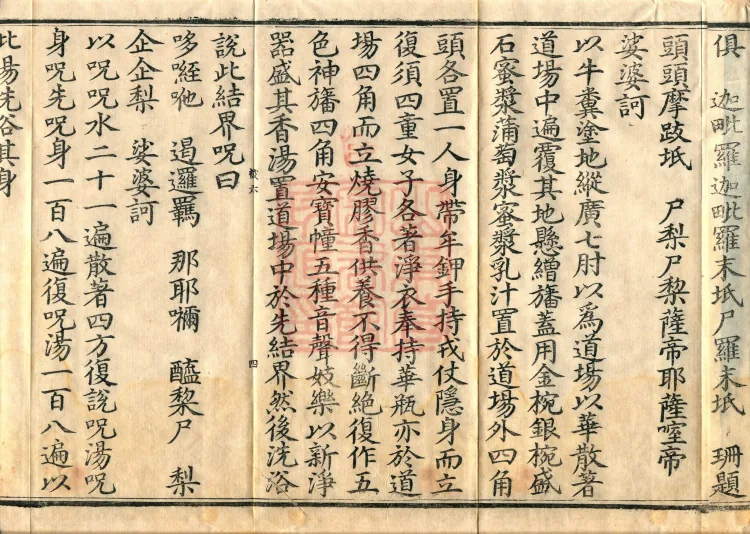 俱 迦毗羅迦毗羅末坻尸羅末坻 珊題
頭頭摩跂坻 尸梨尸梨薩帝耶薩喹帝
娑婆訶
以牛糞塗地縱廣七肘以爲道場以華散著
道場中遍覆其地懸繒旛蓋用金椀銀椀盛
石蜜漿蒲萄漿蜜漿乳汁置於道場外四角
頭各置一人身帶牟鉀手持戎仗隱身而立
復須四童女子各著淨衣奉持華瓶亦於道
場四角而立燒膠香供養不得斷絕復作五
色神旛四角安寶幢五種音聲妓樂以新淨
器盛其香湯置道場中於先結界然後洗浴
四
說此結界呪曰
哆絰咃 遏邏羈 那耶嚩 醯棃尸 梨
企企梨 娑婆訶
以呪呪水二十一遍散著四方復說呪湯呪
身呪先呪身一百八遍復呪湯一百八遍以
此湯先浴其身